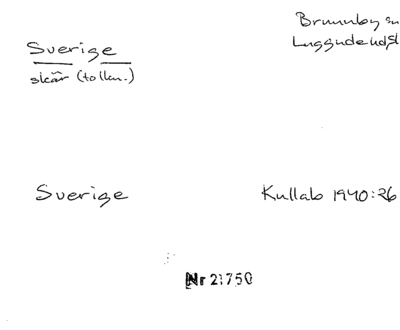 Sverige
skär (tolkn.)
Brunnby sn
Luggude hd Sk
Sverige
Kullab 1940:26
Nr 21750